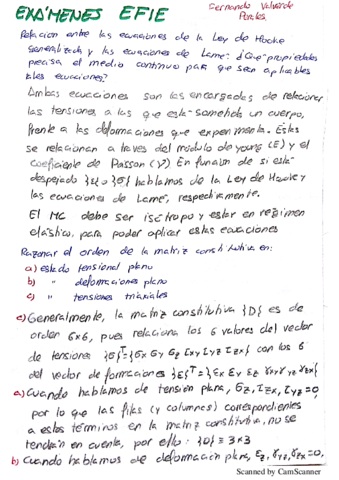 EXÁMENES EFIE
Fernando Valverde
Perales
Relacion entre las ecuaciones de la Ley de Hooke
Generalizada y las ecuaciones de Lame: ¿Que propiedades
precisa el medio continuo para que sean aplicables
tales ecuaciones?
Ambas ecuaciones son las encargadas de relacionar
las tensiones a las que está sometido un cuerpo,
frente a las deformaciones que experimenta. Estas
se relacionan a traves del módulo de young (E) y el
coeficiente de Passon (ν) En función de si está
despejado {ε} o {σ} hablamos de la Ley de Hooke y
las ecuaciones de Lamé, respectivamente.
El MC debe ser isótropo y estar en régimen
elástico, para poder aplicar estas ecuaciones
Razonar el orden de la matriz constitutiva en:
a) estado tensional plano
b) " deformaciones plano
c) " tensiones triaxiales
c) Generalmente, la matriz constitutiva {D} es de
orden 6x6, pues relaciona los 6 valores del vector
de tensiones {σ}ᵀ={σx σy σz τxy τyz τzx} con los 6
del vector de deformaciones {ε}ᵀ={εx εy εz γxy γyz γzx}
a) Cuando hablamos de tensión plana, σz, τzx, τyz=0,
por lo que las filas (y columnas) correspondientes
a estos términos en la matriz constitutiva, no se
tendrán en cuenta, por ello: {D} ≡ 3x3
b) Cuando hablamos de deformación plana, εz, γyz, γzx=0,
Scanned by CamScanner